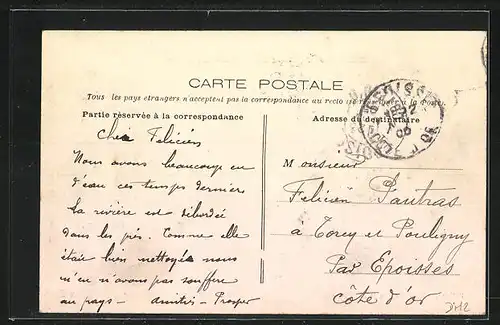 CARTE POSTALE
Tous les pays étrangers n'acceptent pas la correspondance au recto (se renseigner à la Poste)
Partie réservée à la correspondance
Adresse du destinataire
Cher Félicien
Nous avons beaucoup eu
d'eau ces temps derniers
La rivière est débordée
dans les prés. Comme elle
était bien nettoyée nous
n'en n'avons pas souffert
au pays - amitiés - Prosper
Monsieur
Félicien Pautras
à Torcy et Pouligny
Par Epoisses
Côte d'or